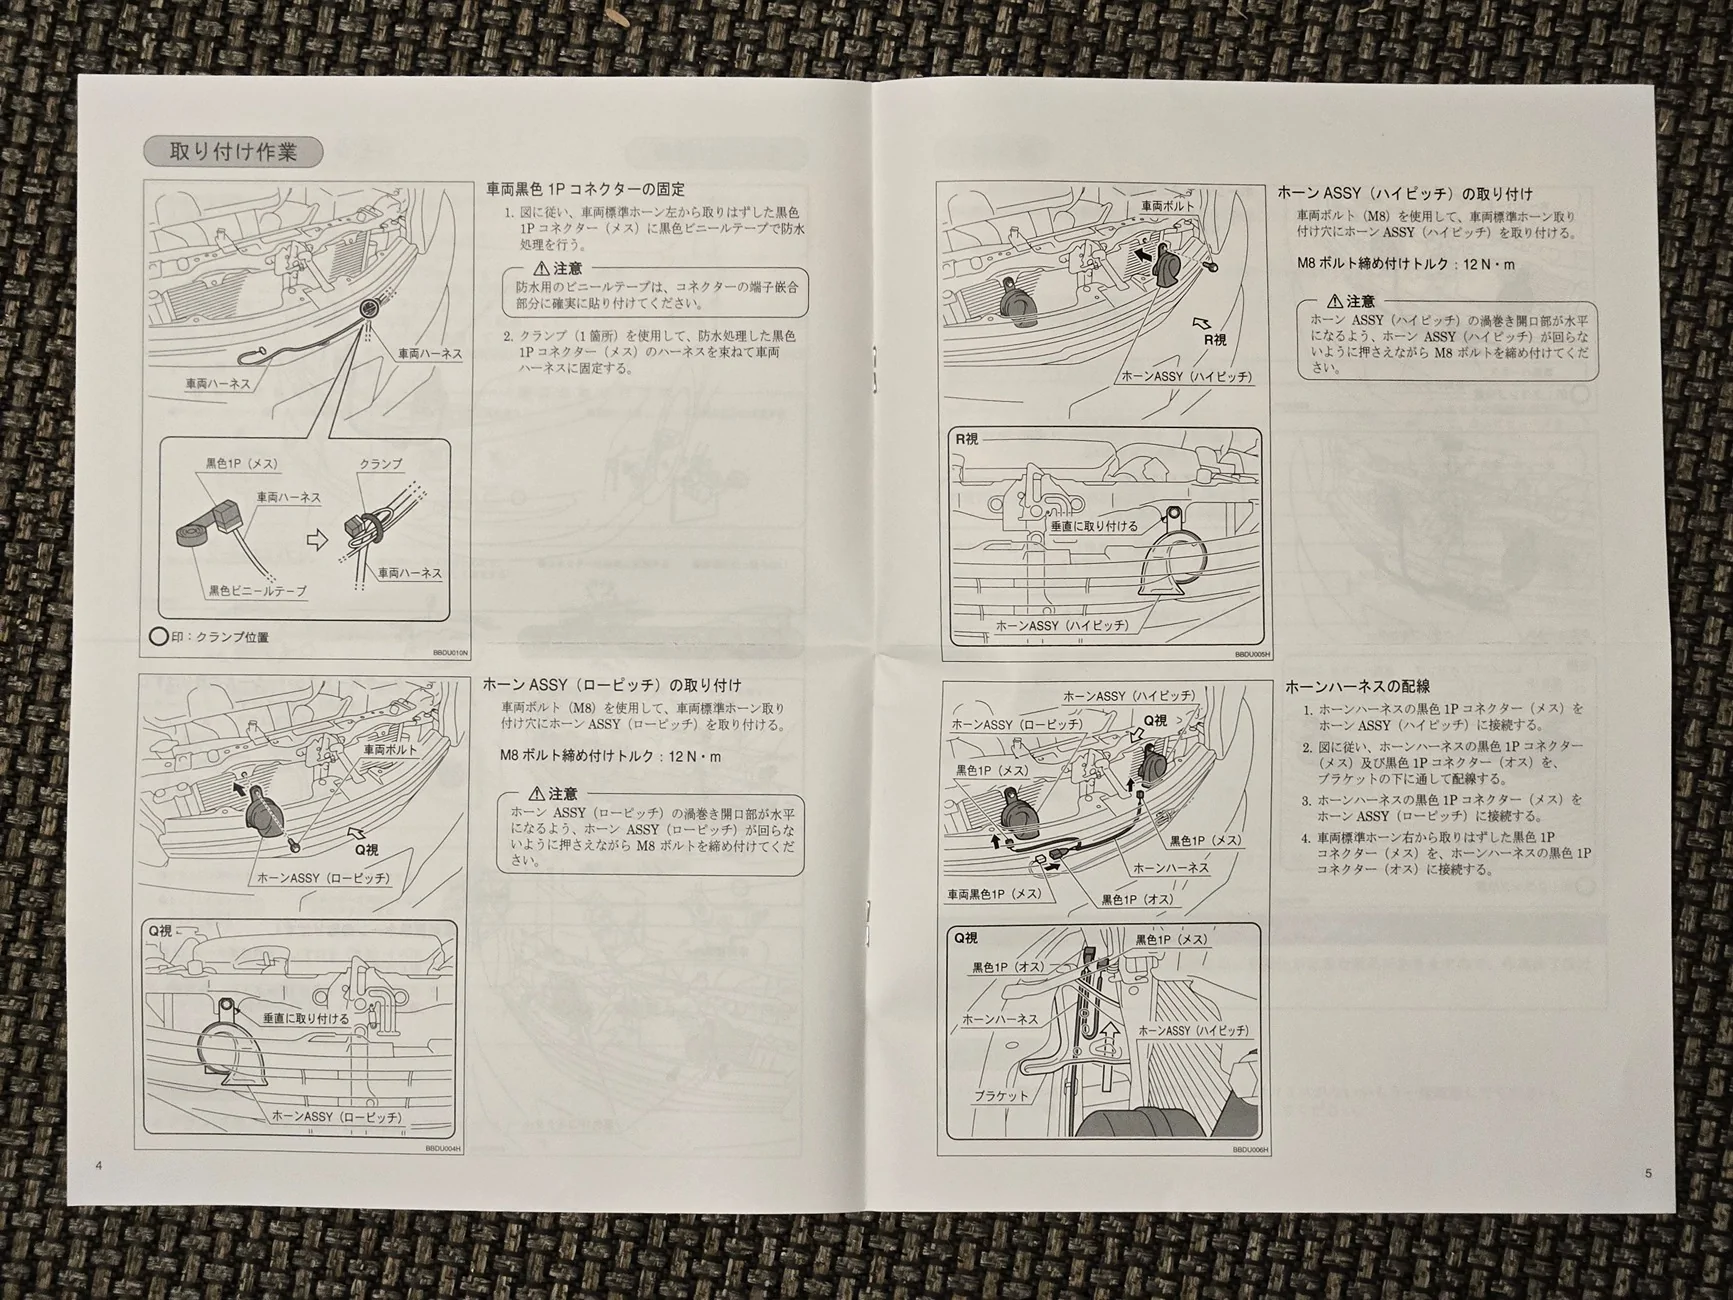 取り付け作業
車両ハーネス
車両ハーネス
黒色1P（メス）
クランプ
車両ハーネス
車両ハーネス
黒色ビニールテープ
印：クランプ位置
BBDU010N
車両黒色 1P コネクターの固定
1. 図に従い、車両標準ホーン左から取りはずした黒色
1P コネクター（メス）に黒色ビニールテープで防水
処理を行う。
注意
防水用のビニールテープは、コネクターの端子嵌合
部分に確実に貼り付けてください。
2. クランプ（1 箇所）を使用して、防水処理した黒色
1P コネクター（メス）のハーネスを束ねて車両
ハーネスに固定する。
車両ボルト
Q視
ホーンASSY（ローピッチ）
Q視
垂直に取り付ける
ホーンASSY（ローピッチ）
BBDU004H
ホーン ASSY（ローピッチ）の取り付け
車両ボルト（M8）を使用して、車両標準ホーン取り
付け穴にホーン ASSY（ローピッチ）を取り付ける。
M8 ボルト締め付けトルク：12 N・m
注意
ホーン ASSY（ローピッチ）の渦巻き開口部が水平
になるよう、ホーン ASSY（ローピッチ）が回らな
いように押さえながら M8 ボルトを締め付けてくだ
さい。
4
車両ボルト
R視
ホーンASSY（ハイピッチ）
R視
垂直に取り付ける
ホーンASSY（ハイピッチ）
BBDU005H
ホーン ASSY（ハイピッチ）の取り付け
車両ボルト（M8）を使用して、車両標準ホーン取り
付け穴にホーン ASSY（ハイピッチ）を取り付ける。
M8 ボルト締め付けトルク：12 N・m
注意
ホーン ASSY（ハイピッチ）の渦巻き開口部が水平
になるよう、ホーン ASSY（ハイピッチ）が回らな
いように押さえながら M8 ボルトを締め付けてくだ
さい。
ホーンASSY（ハイピッチ）
ホーンASSY（ローピッチ）
Q視
黒色1P（メス）
黒色1P（メス）
ホーンハーネス
車両黒色1P（メス）
黒色1P（オス）
Q視
黒色1P（メス）
黒色1P（オス）
ホーンハーネス
ホーンASSY（ハイピッチ）
ブラケット
BBDU006H
ホーンハーネスの配線
1. ホーンハーネスの黒色 1P コネクター（メス）を
ホーン ASSY（ハイピッチ）に接続する。
2. 図に従い、ホーンハーネスの黒色 1P コネクター
（メス）及び黒色 1P コネクター（オス）を、
ブラケットの下に通して配線する。
3. ホーンハーネスの黒色 1P コネクター（メス）を
ホーン ASSY（ローピッチ）に接続する。
4. 車両標準ホーン右から取りはずした黒色 1P
コネクター（メス）を、ホーンハーネスの黒色 1P
コネクター（オス）に接続する。
5